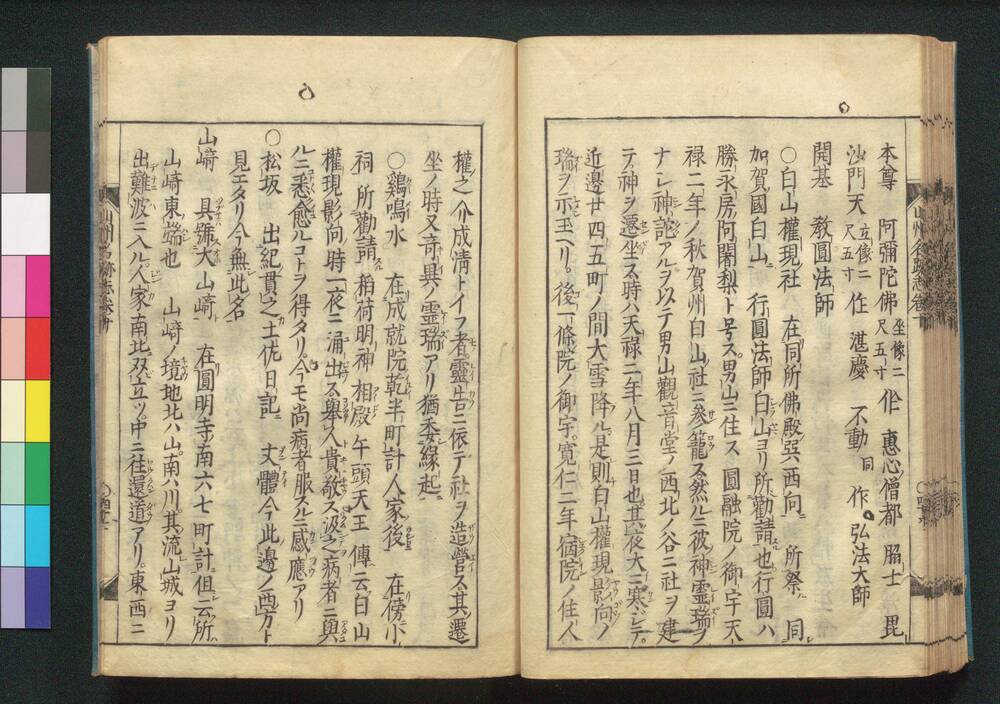 本尊 阿彌陀佛 坐像二尺五寸 作 惠心僧都 脇士 毘
沙門天 立像二尺五寸 作 湛慶 不動 同 作 弘法大師
開基 教圓法師
○白山權現社 在同所佛殿巽西向 所祭 同
加賀國白山 行圓法師白山ヨリ所勸請也行圓ハ
勝永房阿闍梨ト号ス男山ニ住ス 圓融院ノ御宇天
禄二年ノ秋賀州白山社ニ參籠ス然ルニ彼神靈瑞ヲ
ナシ神託アルヲ以テ男山觀音堂ノ西北ノ谷ニ社ヲ建
テ神ヲ遷坐ス時ハ天禄二年八月三日也其夜大ニ寒シテ
近邊廿四五町ノ間大雪降ル是則白山權現影向ノ
瑞ヲ示玉ヘリ。後一條院ノ御宇寛仁二年宿院ノ住人
權之介成清トイフ者靈告ニ依テ社ヲ造營ス其遷
坐ノ時又奇異ノ靈瑞アリ猶委縁起
○鷄鳴水 在成就院乾半町計人家後 在傍小
祠 所勸請 稲荷明神 相殿 午頭天王 傳云白山
權現影向ノ時一夜ニ涌出ス舉人貴敬ス汲之病者ニ與
ルニ悉愈ルコトヲ得タリ今モ尚病者服スルニ感應アリ
○松坂 出紀貫之土佐日記 丈體今此邊ノ西方ト
見エタリ今無此名
山﨑 具號大山﨑 在圓明寺南六七町計但シ云所
山﨑東端也 山﨑ノ境地北ハ山南ハ川其流山城ヨリ
出難波ニ入ル人家南北双立ツ中ニ往還道アリ東西ニ
山州名跡志巻十
山州名跡志巻十